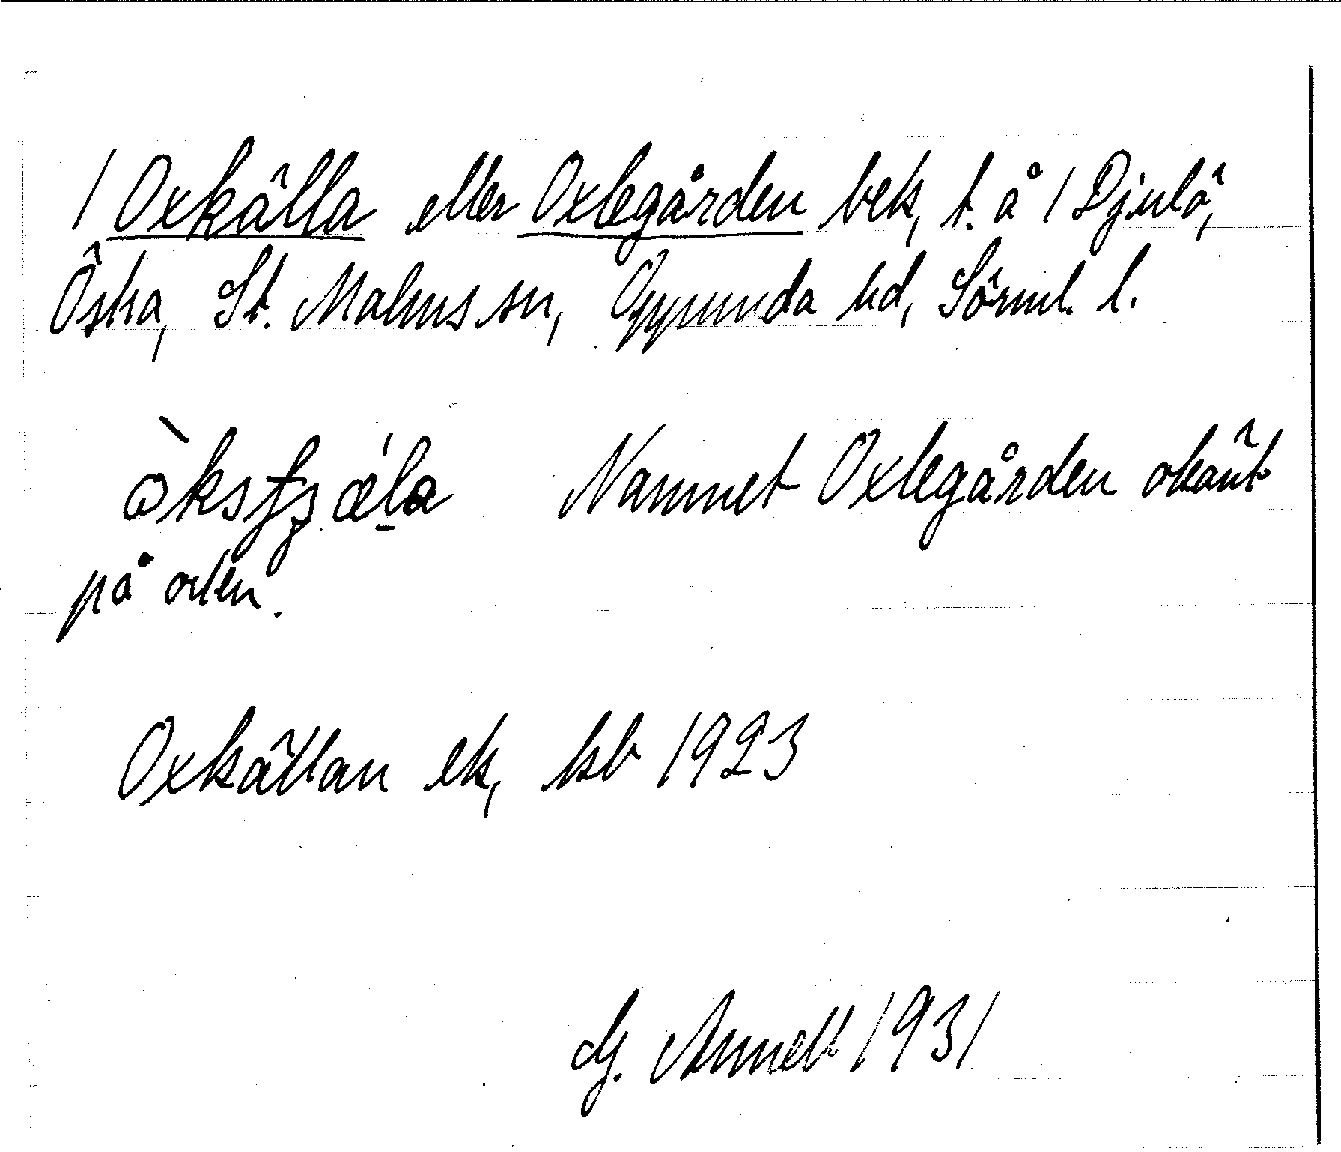 / Oxkälla eller Oxlegården bek, t. å / Djulö,
Östra, St. Malms sn, Oppunda hd, Sörml. l.
òksʈʂǽla Namnet Oxlegården okänt
på orten.
Oxkällan ek, kb 1923
G. Annell 1931